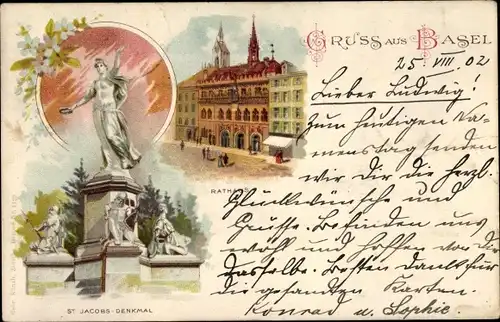 GRUSS AUS BASEL
25 VIII. 02
Lieber Ludwig!
Zum heutigen Na-
menstag senden
wir Dir die herzl.
Glückwünsche und
Grüsse. Befinden uns
wohl und hoffen von dir
dasselbe. Besten Dank für
die gesandten Karten.
Konrad u. Sophie.
RATHAUS
ST JACOBS-DENKMAL